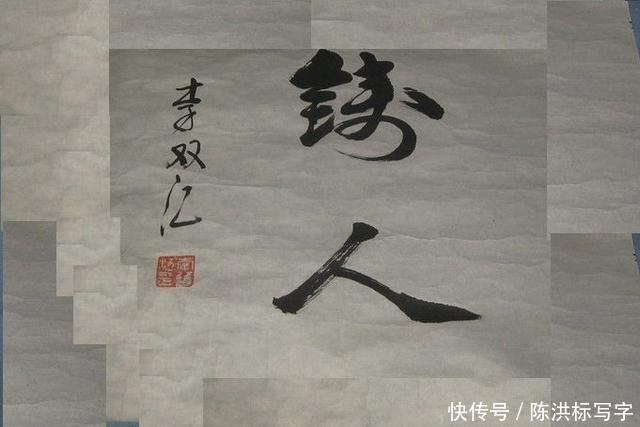 铸人
李双江
快传号/陈洪标写字